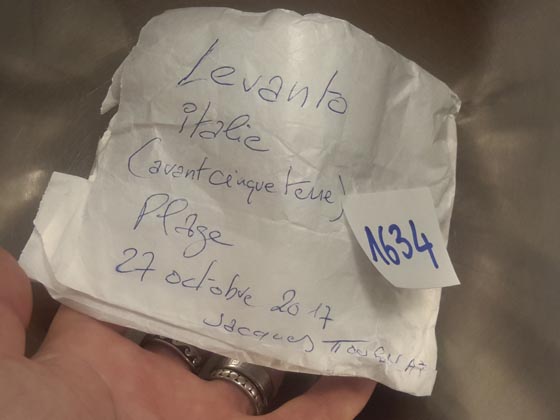 Levanto
italie
(avant cinque terre)
Plage
1634
27 octobre 2017
Jacques